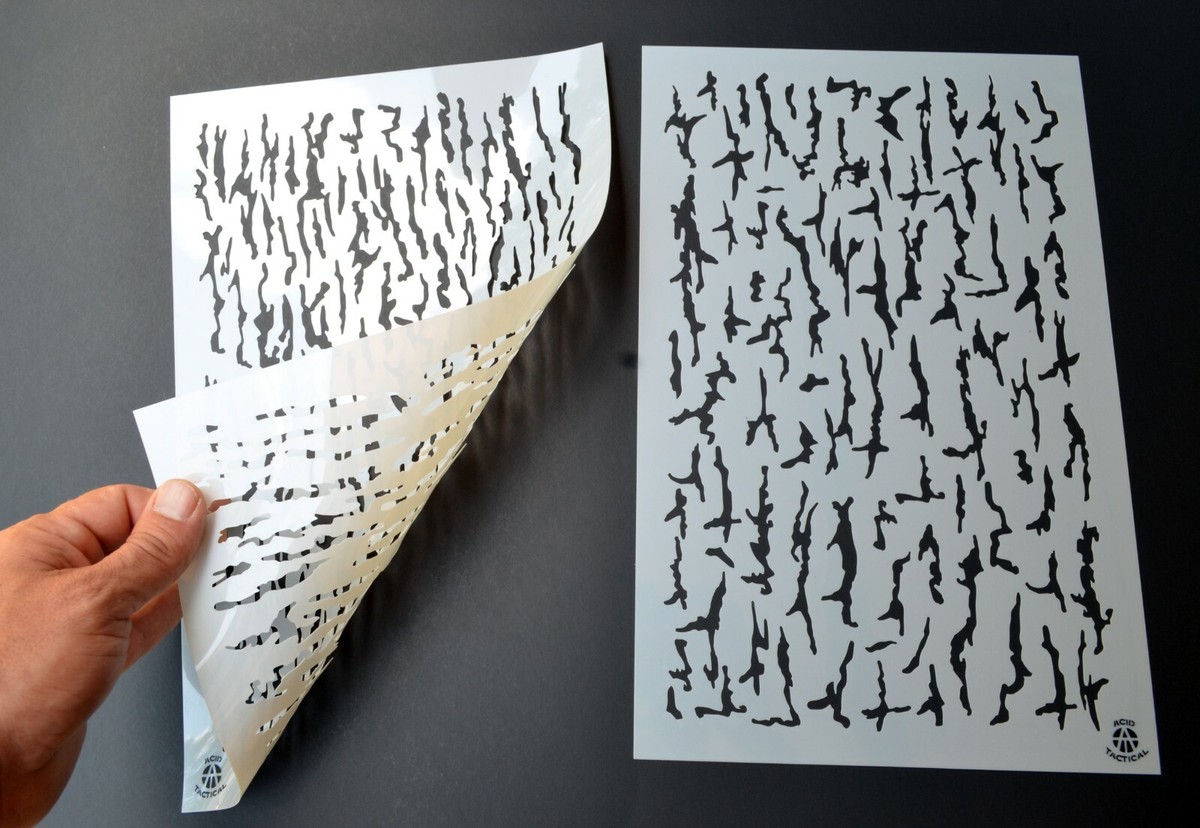 ACID
TACTICAL
ACID
TACTICAL